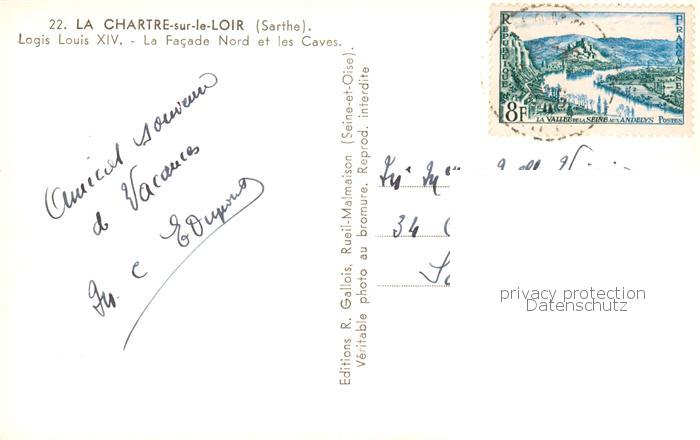 22. LA CHARTRE-sur-le-LOIR (Sarthe).
Logis Louis XIV. - La Façade Nord et les Caves.
Amical souvenir
de Vacances
E Dupont
Editions R. Gallois, Rueil-Malmaison (Seine-et-Oise).
Véritable photo au bromure. Reprod. interdite
REPUBLIQUE
FRANÇAISE
8F
LA VALLEE DE LA SEINE AUX ANDELYS POSTES
34
privacy protection
Datenschutz